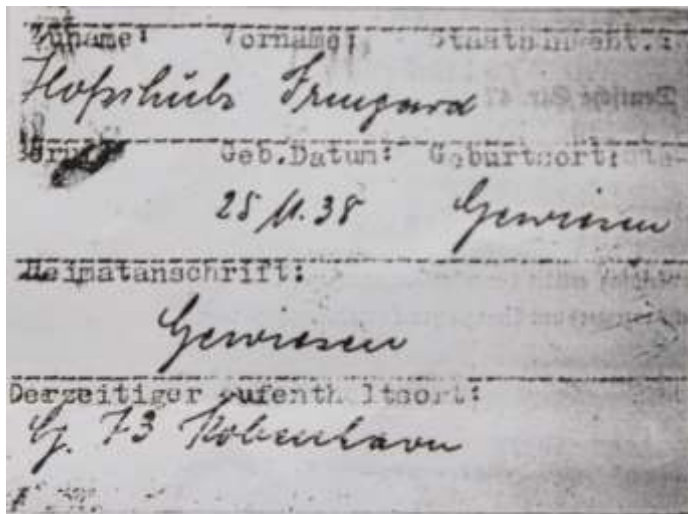 Zuname: Vorname: Staatsangeh.:
Irmgard
Beruf: Geb.Datum: Geburtsort:
25/11.38 Gewiesen
Heimatanschrift:
Gewiesen
Derzeitiger Aufenthaltsort:
Lg. 73 Kobenhavn